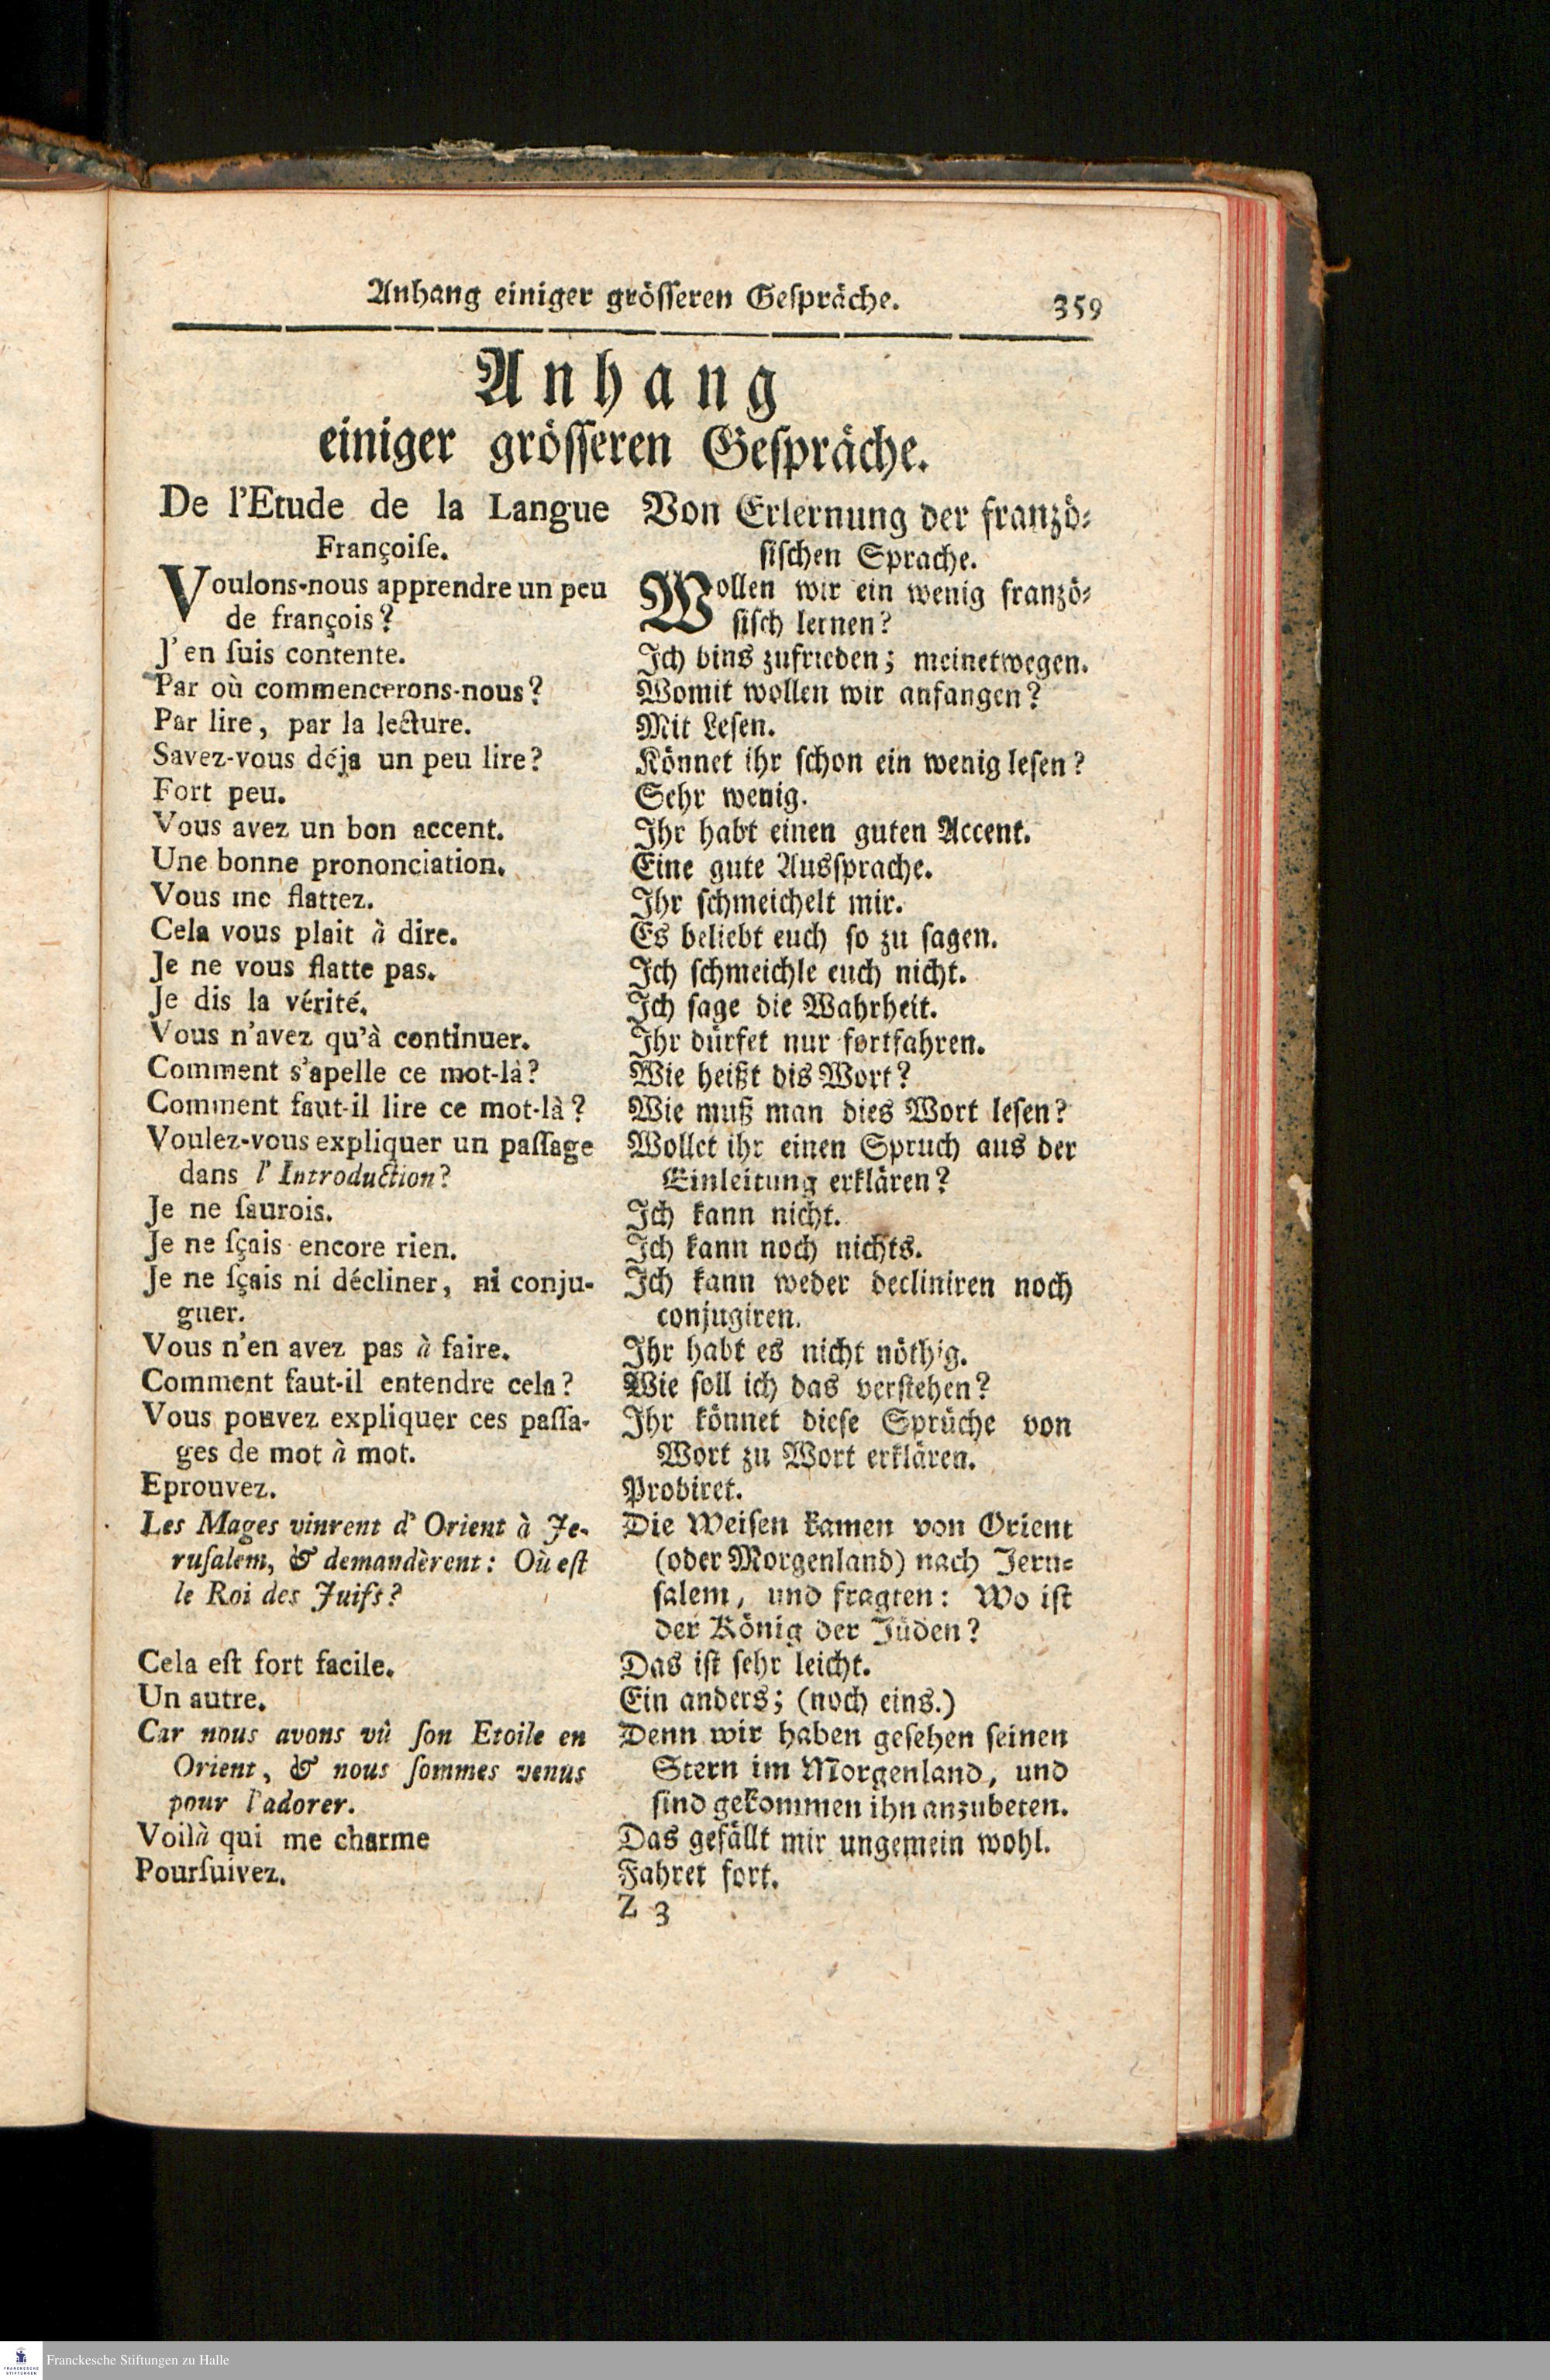 Anhang einiger grösseren Gespräche. 359
Anhang
einiger grösseren Gespräche.
De l'Etude de la Langue
Françoiſe.
Voulons-nous apprendre un peu
de françois?
J'en ſuis contente.
Par où commencerons-nous?
Par lire, par la lecture.
Savez-vous déja un peu lire?
Fort peu.
Vous avez un bon accent.
Une bonne prononciation.
Vous me flattez.
Cela vous plait à dire.
Je ne vous flatte pas.
Je dis la vérité.
Vous n'avez qu'à continuer.
Comment s'apelle ce mot-là?
Comment faut-il lire ce mot-là?
Voulez-vous expliquer un paſſage
dans l'Introduction?
Je ne ſaurois.
Je ne ſçais encore rien.
Je ne ſçais ni décliner, ni conju-
guer.
Vous n'en avez pas à faire.
Comment faut-il entendre cela?
Vous pouvez expliquer ces paſſa-
ges de mot à mot.
Eprouvez.
Les Mages vinrent d'Orient à Je-
ruſalem, & demandèrent: Où eſt
le Roi des Juifs?
Cela eſt fort facile.
Un autre.
Car nous avons vû ſon Etoile en
Orient, & nous ſommes venus
pour l'adorer.
Voilà qui me charme
Pourſuivez.
Von Erlernung der franzö-
ſiſchen Sprache.
Wollen wir ein wenig franzö-
ſiſch lernen?
Ich bins zufrieden; meinetwegen.
Womit wollen wir anfangen?
Mit Leſen.
Könnet ihr ſchon ein wenig leſen?
Sehr wenig.
Ihr habt einen guten Accent.
Eine gute Ausſprache.
Ihr ſchmeichelt mir.
Es beliebt euch ſo zu ſagen.
Ich ſchmeichle euch nicht.
Ich ſage die Wahrheit.
Ihr dürfet nur fortfahren.
Wie heißt dis Wort?
Wie muß man dies Wort leſen?
Wollet ihr einen Spruch aus der
Einleitung erklären?
Ich kann nicht.
Ich kann noch nichts.
Ich kann weder decliniren noch
conjugiren.
Ihr habt es nicht nöthig.
Wie ſoll ich das verſtehen?
Ihr könnet dieſe Sprüche von
Wort zu Wort erklären.
Probiret.
Die Weiſen kamen von Orient
(oder Morgenland) nach Jeru-
ſalem, und fragten: Wo iſt
der König der Jüden?
Das iſt ſehr leicht.
Ein anders; (noch eins.)
Denn wir haben geſehen ſeinen
Stern im Morgenland, und
ſind gekommen ihn anzubeten.
Das gefällt mir ungemein wohl.
Fahret fort.
Z 3
FRANCKESCHE
STIFTUNGEN
Franckesche Stiftungen zu Halle